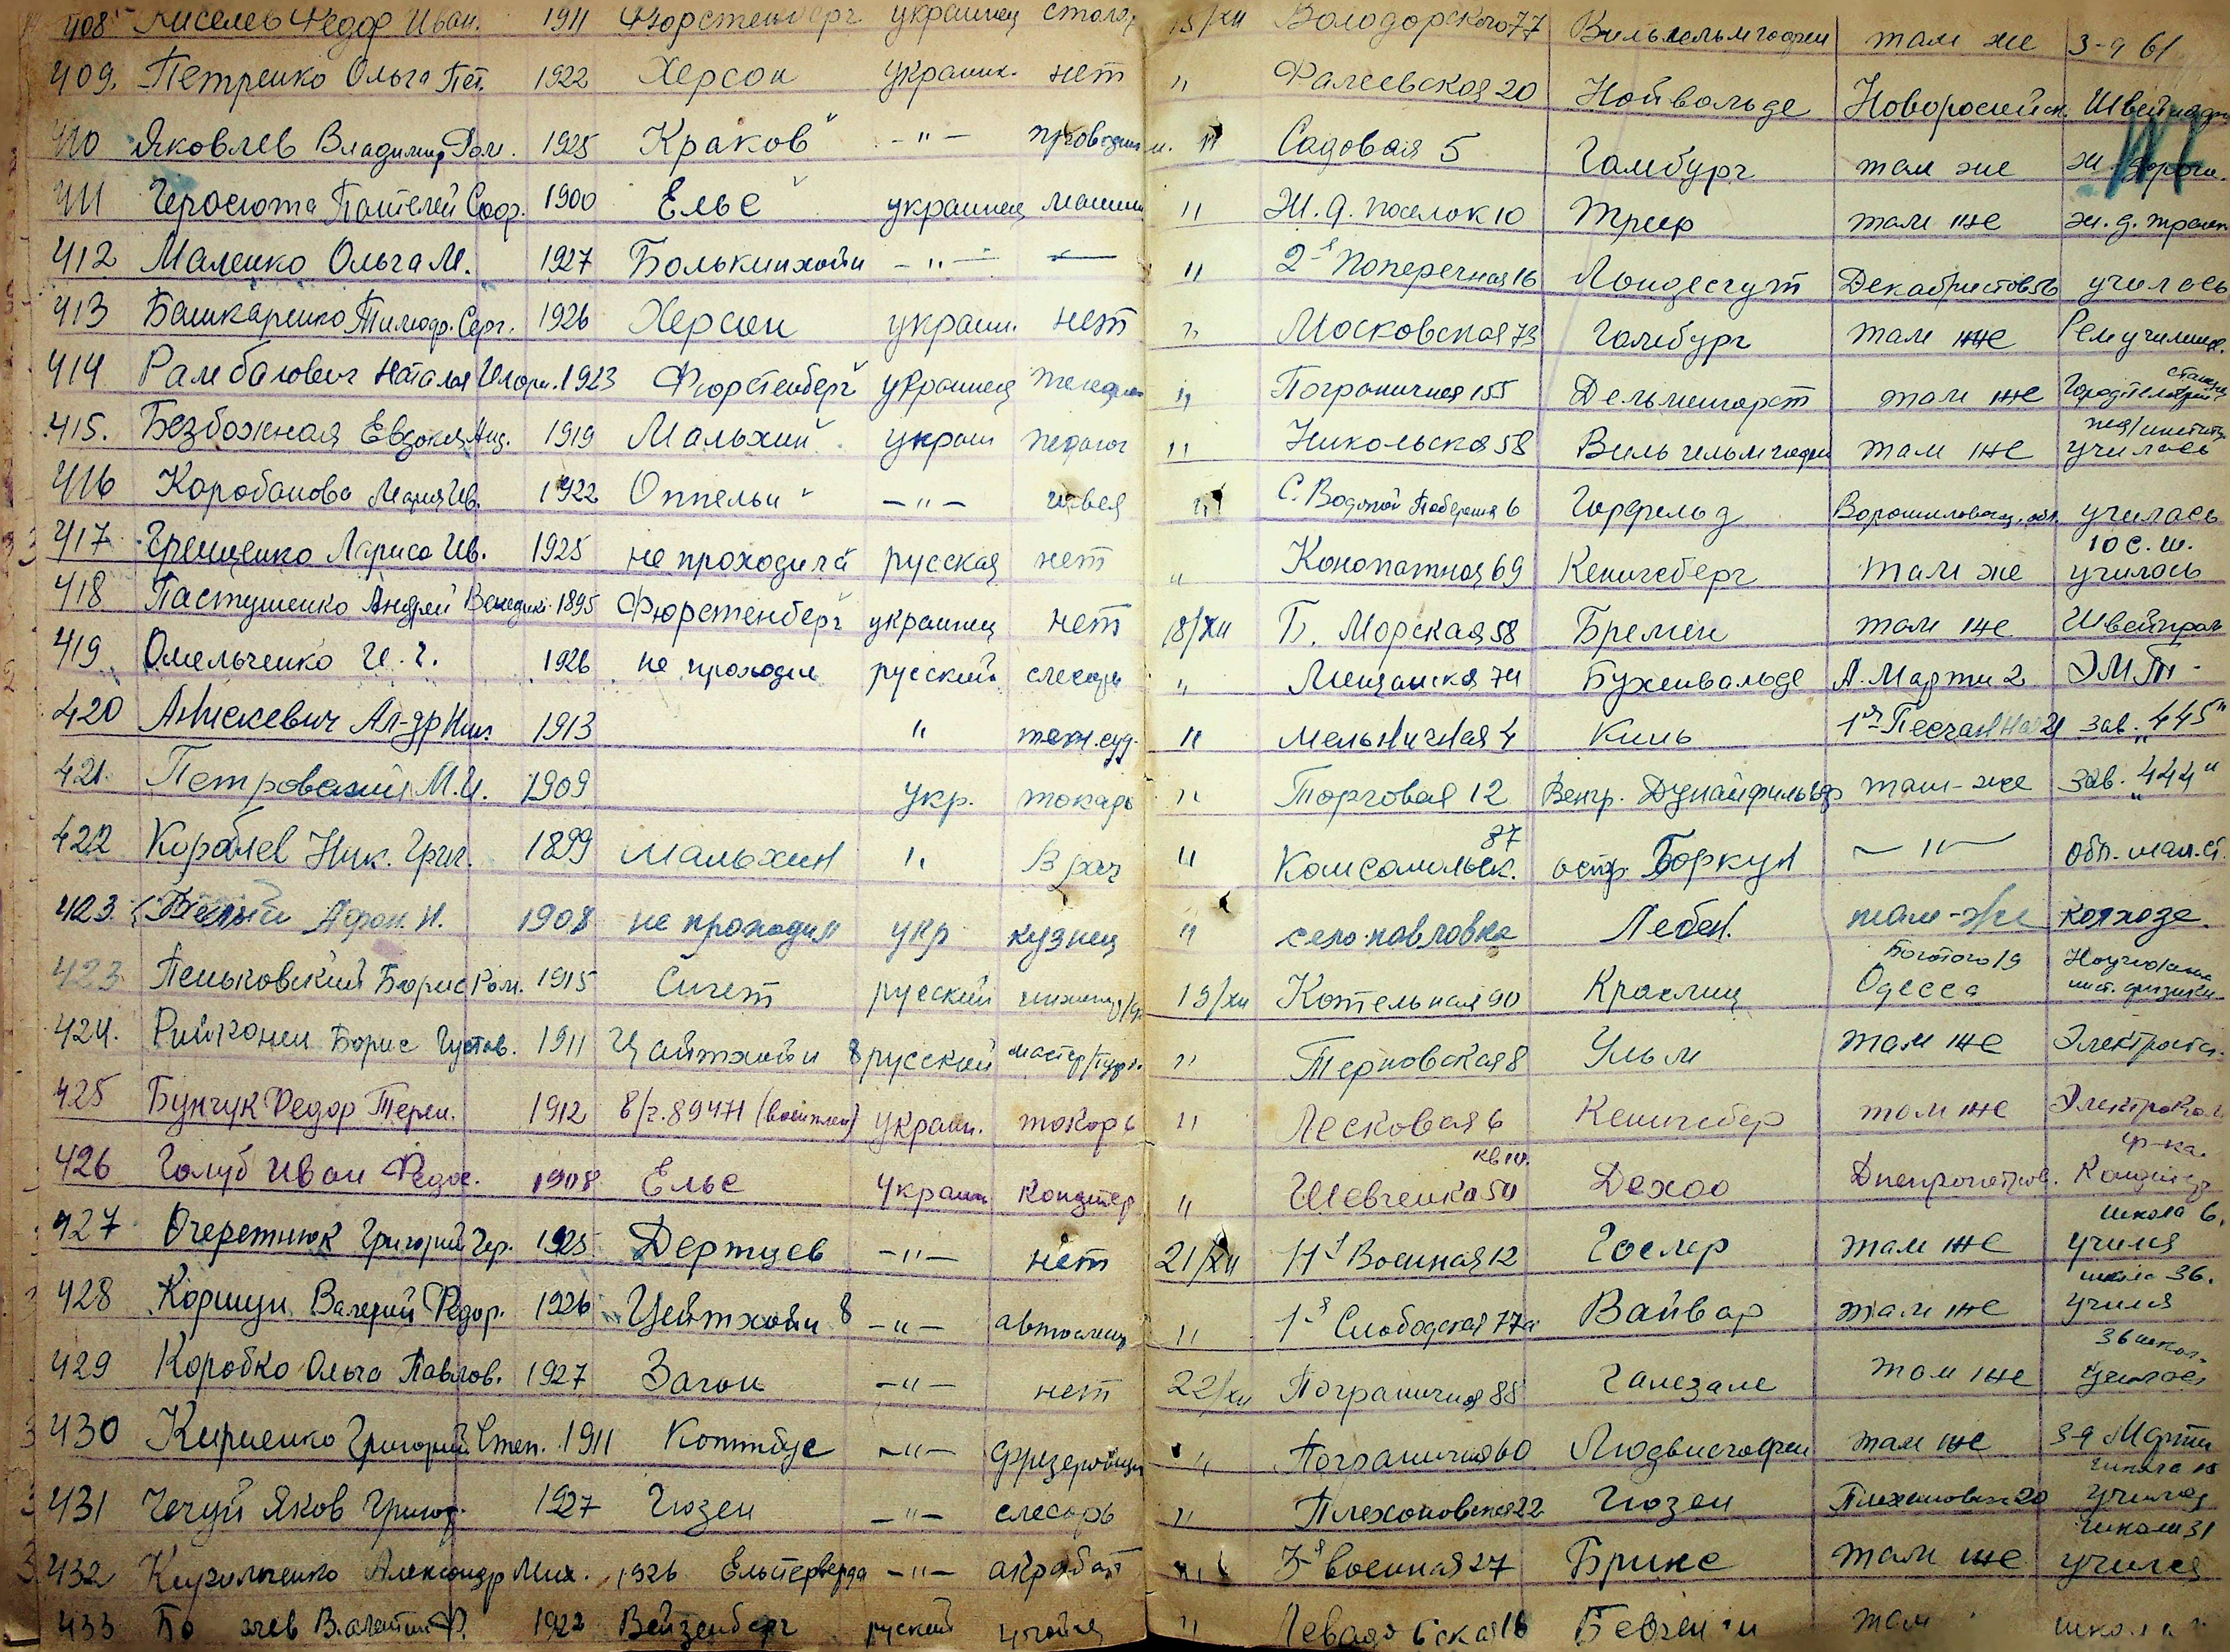 408 Киселев Федор Иван. 1911 Фюрстенберг украинец столяр 15/XII Володорского 77 Вильгельмгафен там же з-д 61
409. Петренко Ольга Пет. 1922 Херсон украин. нет " Фалеевская 20 Нойвальде Новоросийск.
410 Яковлев Владимир Ром. 1925 Краков -"- проводник " Садовая 5 Гамбург там же ж. дорога.
411 Герасюта Пантелей Соф. 1900 Ельс украинец машин " Ж. д. поселок 10 Трир там же ж. д. транс
412 Маленко Ольга М. 1927 Болькинхайн -"- — " 2-я Поперечная 16 Ландесгут Декабристов 56 училась
413 Башкаренко Тимофр. Серг. 1926 Херсон украин. нет " Московская 73 Гамбург там же Рем училищ.
414 Рамбалович Наталья Илар. 1923 Фюрстенберг украинец " Пограничная 155 Дельменгорст там же
415. Безбожная Евдокия 1919 Мальхин украин педагог " Никольская 58 Вильгельмгафен там же пед/институт училась
416 Коробанова Мария Ив. 1922 Оппельн -"- швея " С. Водяной 6 Гарфельд Ворошиловгр. обл. училась
417 Грещенко Лариса Ив. 1925 не проходила русская нет " Конопатная 69 Кенигсберг там же 10 с. ш. училась
418 Пастушенко Андрей Венедик. 1895 Фюрстенберг украинец нет 18/XII Б. Морская 58 Бремен там же Швейпром
419 Омельченко И. Г. 1926 не проходил русский слесарь " Мещанская 74 Бухенвальде А. Марти 2
420 Анискевич Ал-др Ник 1913 " техн. суд. " Мельничная 4 Киль 1я Песчанная 21 зав. "445"
421. Петровский М. И. 1909 укр. токарь " Торговая 12 Венгр. там-же зав. "444"
422 Кораблев Ник. Григ. 1899 Мальхин " Врач " Комсомольск. 87 остр. Боркум -"-
423. Белый Афон. Н. 1908 не проходил укр кузнец " село павловка Лебен. там-же колхозе.
423. Пеньковский Борис Ром. 1915 Сигет русский 19/XII Котельная 90 Краслиц Богатого 19 Одесса
424. Рийконен Борис Густав. 1911 Цайтхайн 8 русский мастер " Терновская 8 Ульм там же Электрост.
425 Бунчук Федор Терен. 1912 в/ч. 89471 (военплен) украин. токарь " Лесковая 6 Кенигсбер там же
426 Голуб Иван Федос. 1908 Ельс украин кондитер " Шевченка 50 кв 10. Дахао Днепропетров. ф-ка. Кондитер
427 Очеретнюк Григорий Гер. 1925 Дертцев -"- нет 21/XII 11я Военная 12 Гослар там же школа 6. учился
428 Коршун Валерий Федор. 1926 Цейтхайн 8 -"- автослес " 1-я Слободская 77а Вайвар там же школа 36. учился
429 Коробко Ольга Павлов. 1927 Заган -"- нет 22/XII Пограничная 88 Галезале там же 36 школ. училась
430 Кириенко Григорий Степ. 1911 Коттбус -"- фрезеровщик " Пограничная 60 Людвигсгафен там же з-д Марти
431 Чечуй Яков Григор. 1927 Гюзен -"- слесарь " Плехановская 22 Гюзен Плехановская 20 школа 15 учился
432 Кирильченко Александр Мих. 1926 Ельстерверда -"- акробат " 3-я военная 27 Брикс там же школа 31 учился
433 Валентин 1922 Вейзенберг руский " Левадовская 16 там школа